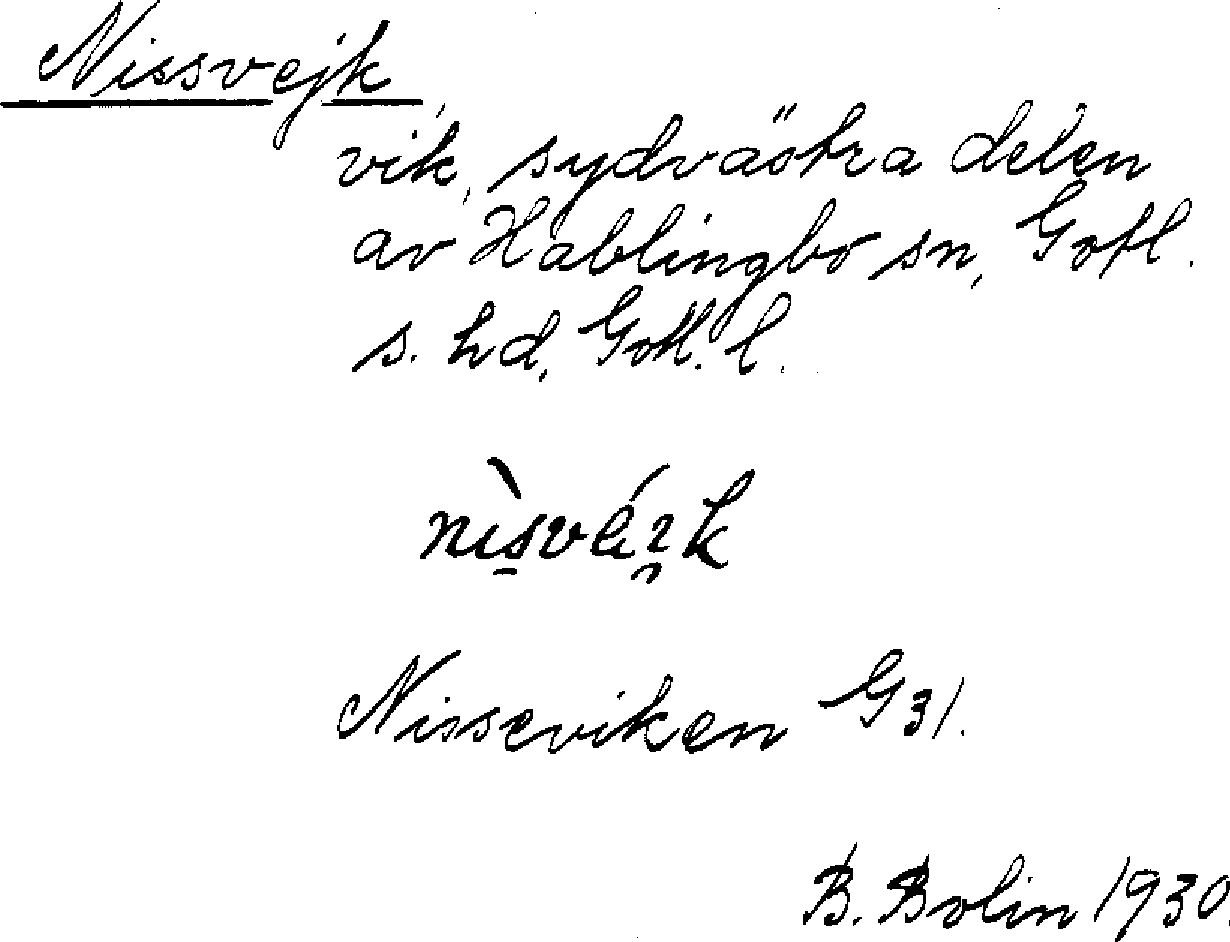 Nissvejk,
vik, sydvästra delen
av Hablingbo sn, Gotl.
s. hd, Gotl. l.
Nisseviken G31.
B. Bolin 1930.